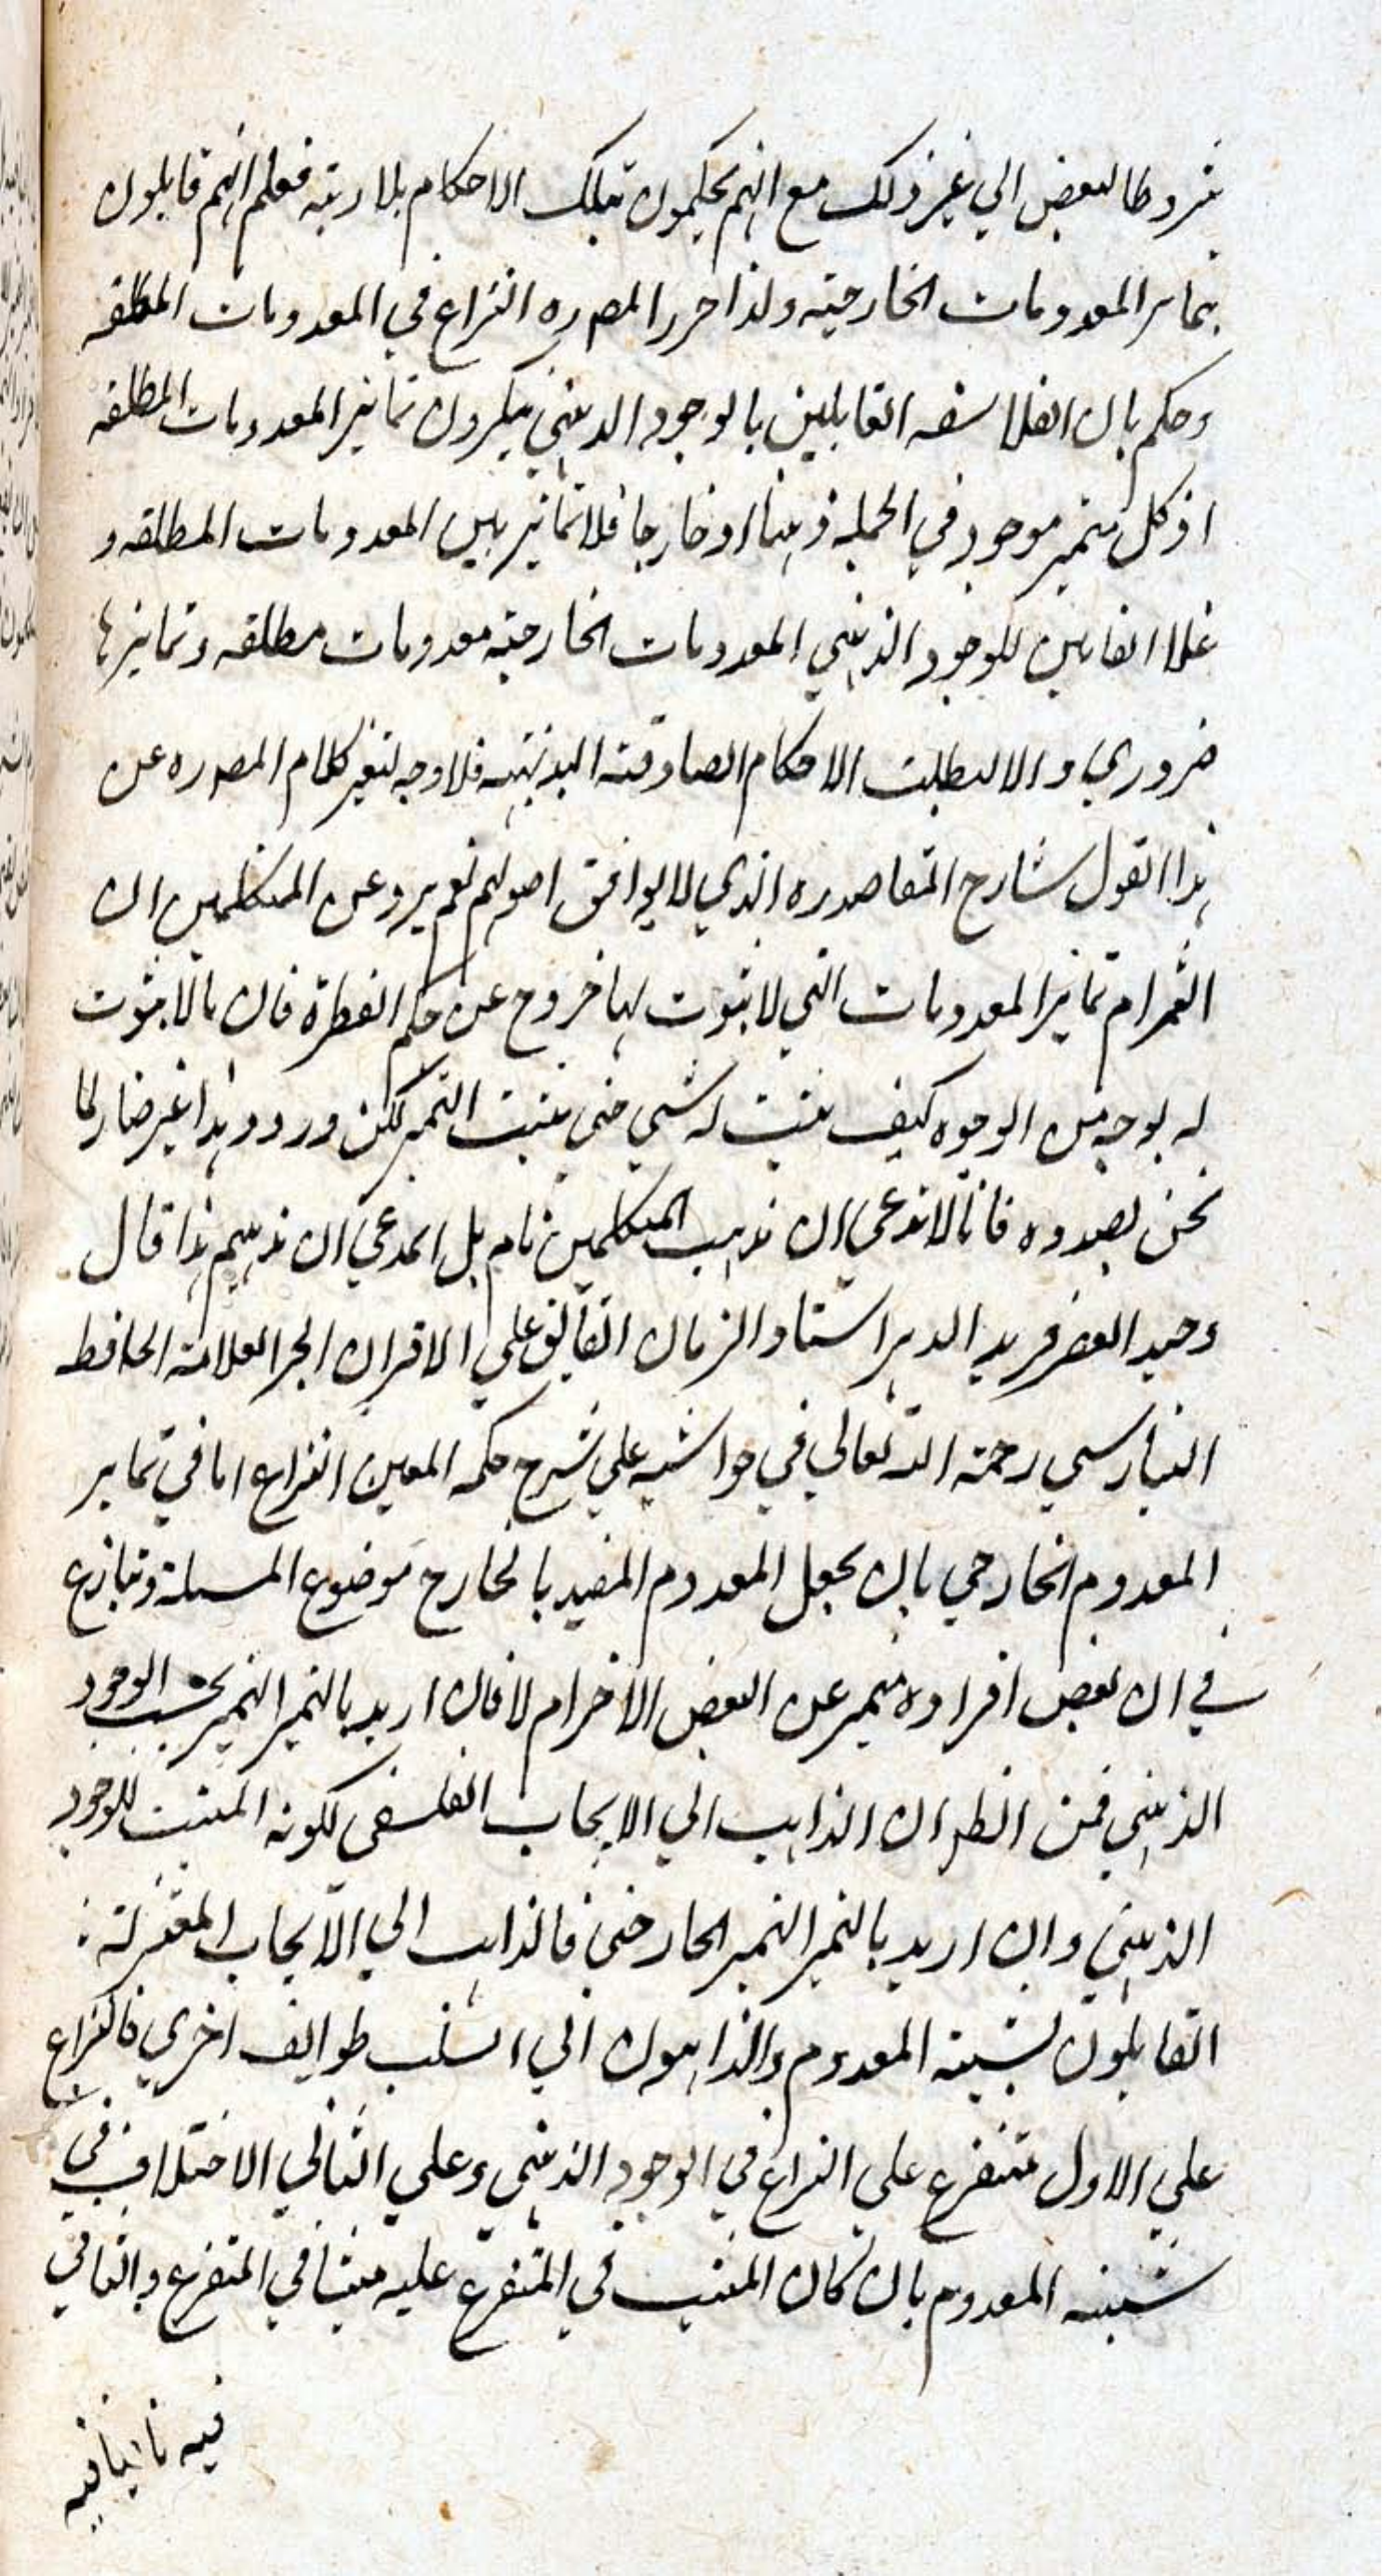 شروطا لبعض الي غير ذلك مع انهم يحكمون بتلك الاحكام بلا ريبة فعلم انهم قايلون
بتمايز المعدومات الخارجية ولذا حرر المصره النزاع في المعدومات المطلقه
وحكم بان الفلاسفه القايلين بالوجود الذهني ينكرون تمايز المعدومات المطلقه
اذ كل متميز موجود في الجمله ذهنا او خارجا فلا تمايز بين المعدومات المطلقه و
عند النافين للوجود الذهني المعدومات الخارجية معدومات مطلقه وتمايزها
ضروري والا لبطلت الاحكام الصادقة البديهيه فلا وجه لتغير كلام المصره عن
هذا القول شارح المقاصدره الذي لا يوافق اصولهم نعم يرد عن المتكلمين ان
التمرام تمايز المعدومات التي لا ثبوت لها خروج عن حكم الفطرة فان مالا ثبوت
له بوجه من الوجوه كيف يثبت له شيي حتي يثبت التميز لكن ورود هذا غير ضار لما
نحن بصدده فانا لا ندعي ان مذهب المتكلمين تام بل المدعي ان مذهبهم هذا قال
وحيد العصر فريد الدهر استاد الزمان الفايق علي الاقران الحبر العلامة الحافظ
البنارسي رحمة الله تعالي في حواشيه علي شرح حكمه العين النزاع اما في تمايز
المعدوم الخارجي بان يجعل المعدوم المقيد بالخارج موضوع المسلة وتنازع
في ان بعض افراده متميز عن البعض الاخر ام لا فان اريد بالتميز التميز بحسب الوجود
الذهني فمن الظهر ان الذاهب الي الايجاب الفلسفي لكونه المثبت للوجود
الذهني وان اريد بالتميز التميز الخارجي فالذاهب الي الايجاب المعتزلة
القايلون بشيية المعدوم والذاهبون الي السلب طوايف اخري فالنزاع
علي الاول متفرع علي النزاع في الوجود الذهني وعلي الثاني الاختلاف في
شييه المعدوم بان كان المثبت في المتفرع عليه مثبتا في المتفرع والنافي
فيه نافيا فيه